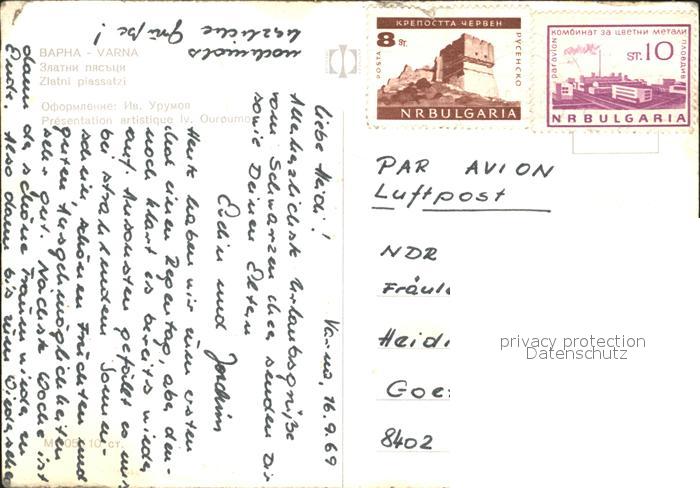 ВАРНА - VARNA
Златни пясъци
Zlatni piassatzi
Оформление: Ив. Урумов
Présentation artistique Iv. Ouroumo
КРЕПОСТТА ЧЕРВЕН
8 ST.
POSTA
РУСЕНСКО
NRBULGARIA
КОМБИНАТ ЗА ЦВЕТНИ МЕТАЛИ
par avion
ПЛОВДИВ
ST. 10
NRBULGARIA
PAR AVION
Luftpost
NDR
Fräul
Heidi
Goe
8402
privacy protection
Datenschutz
Varna, 16.9.69
Liebe Heidi!
Allerherzlichste Urlaubsgrüße
vom Schwarzen Meer senden Dir
sowie Deinen Eltern
und Joachim
Heute haben wir zum ersten
Mal einen Regentag, aber den-
noch klart es bereits wieder
auf. Ansonsten gefällt es uns
bei strahlendem Sonnen-
schein, schönen Früchten und
guten Ausgehmöglichkeiten
sehr gut. Nächste Woche ist
dann der schöne Traum wieder zu
Ende. Also dann bis zum Wiedersehe
nochmals
herzliche Grüße!
10 ст.